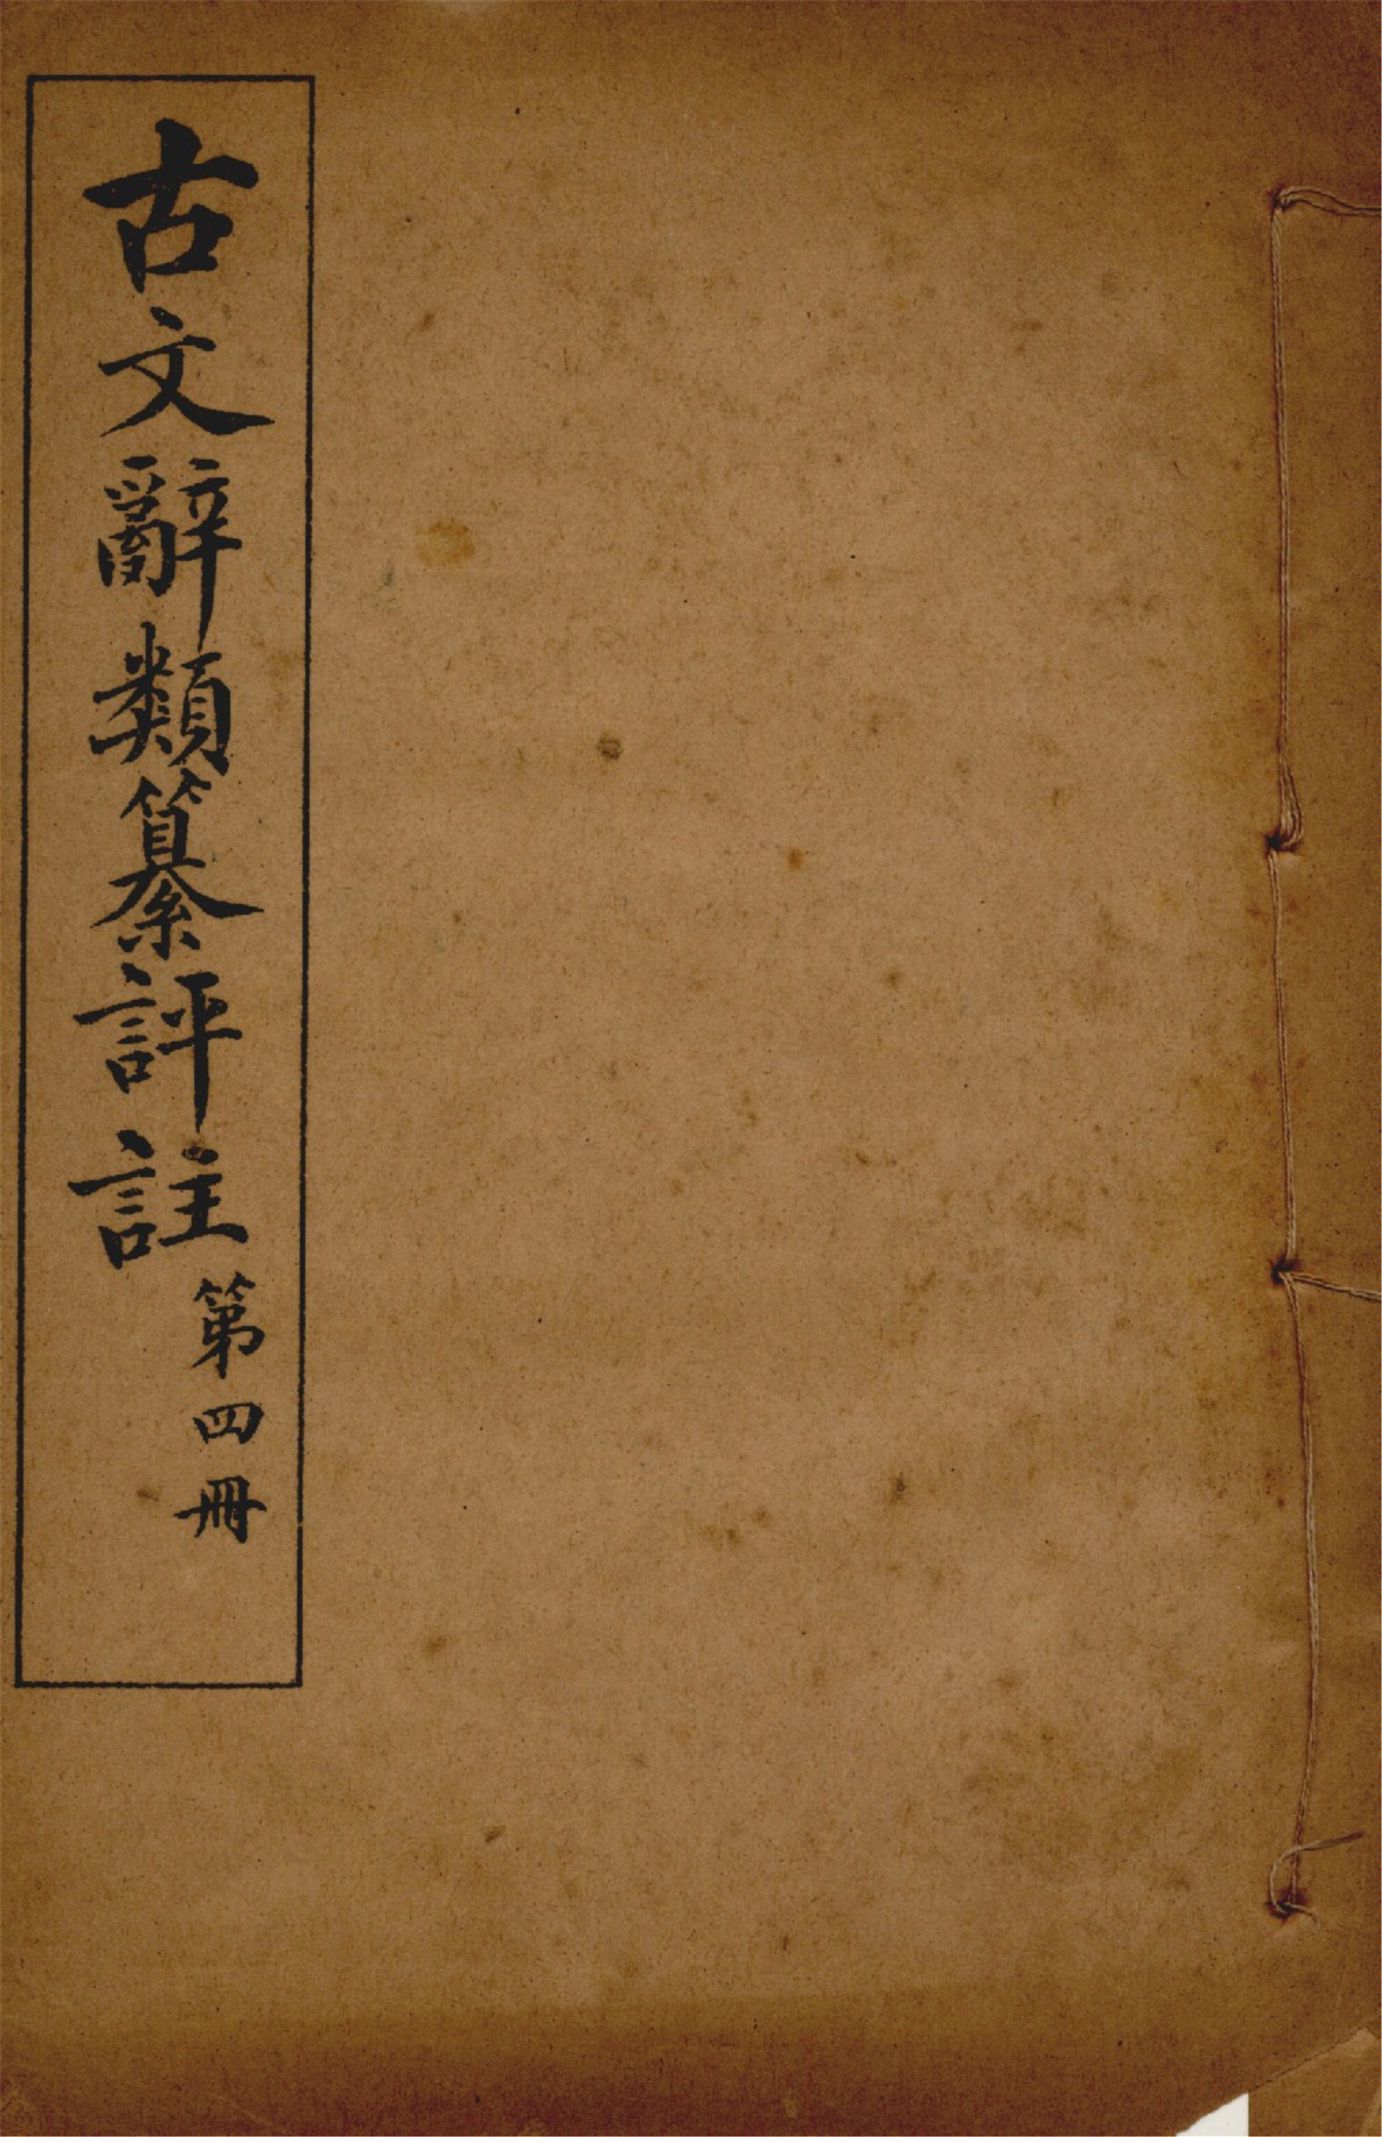 古文辭類纂評註
第四冊